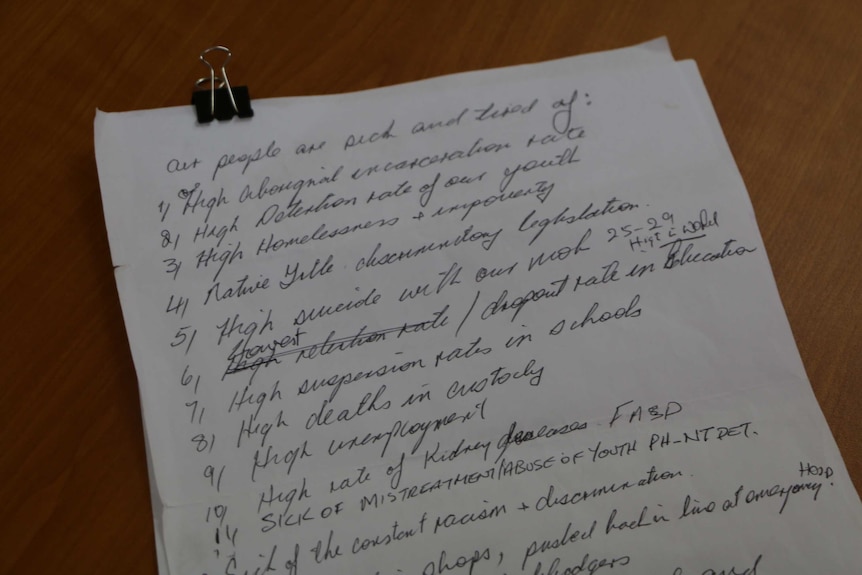 our people are sick and tired of:
1) High Aboriginal incarceration rate
2) High Detention rate of our youth
3) High Homelessness + impoverty
4) Native Title discriminatory legislation.
5) High suicide with our mob 25-29
High retention rate / dropout rate in Education
Lowest
6) High suspension rates in schools
7) High deaths in custody
8) High unemployment
9) High rate of Kidney diseases FASD
10) SICK OF MISTREATMENT/ABUSE OF YOUTH PH-NT DET.
11) Sick of the constant racism + discrimination.
shops, pushed back in line at emergency Hosp.
and